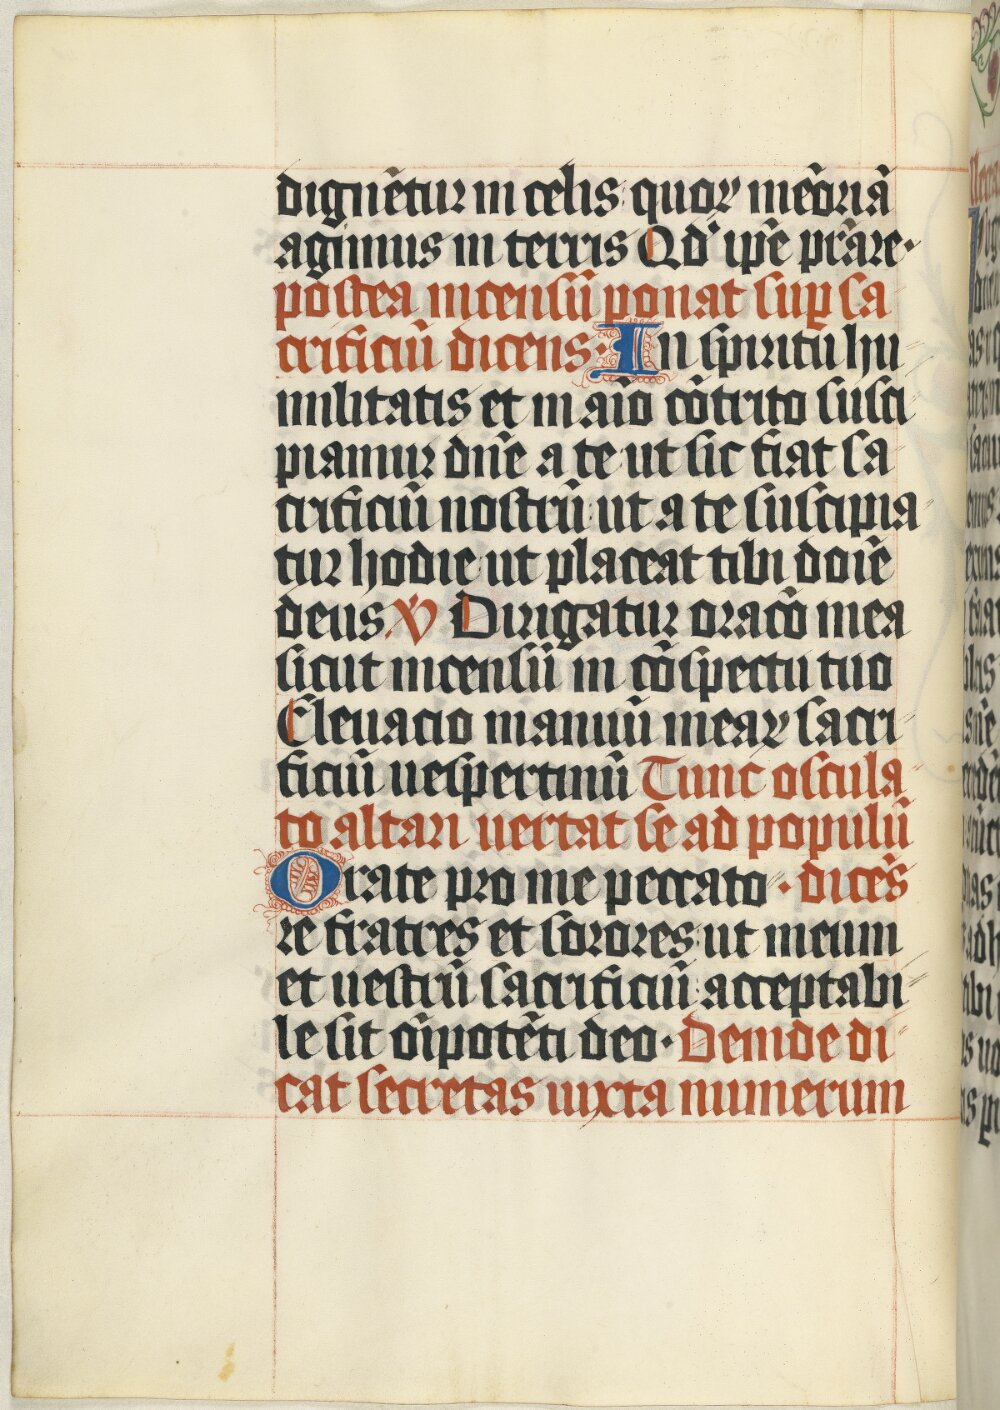 dignēt᷑ in celis quoꝝ mēōriā
agimus in terris Qd' ip̄e pr̄are·
postea incensū ponat suꝑ sa
crificiū dicens· In spiritu hu
militatis et in aīo cōtrito susci
piamur dn̄e a te ut sic fiat sa
crificiū nostrū ut a te suscipia
tur hodie ut placeat tibi doīe
deus ℣ Dirigatur oracō mea
sicut incensū in cōspectu tuo
Eleuacio manuū meaꝝ sacri
ficiū uespertinū Tunc oscula
to altari uertat se ad populū
Orate pro me peccato · dicēs
re fratres et sorores ut meum
et uestrū sacrificiū acceptabi
le sit oīpotēti deo· Deinde di
cat secretas iuxta numerum